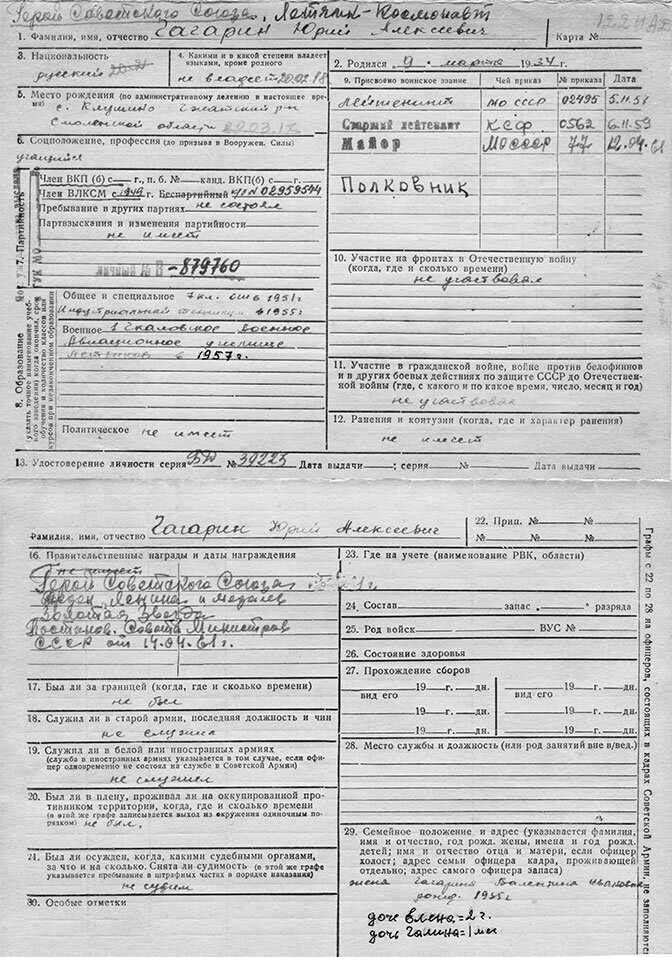 Герой Советского Союза, Летчик-Космонавт
1. Фамилия, имя, отчество Гагарин Юрий Алексеевич Карта №
3. Национальность
русский
4. Какими и в какой степени владеет
языками, кроме родного
не владеет 20.02.18
2. Родился 9 марта 1934 г.
5. Место рождения (по административному делению в настоящее вре-
мя) с. Клушино Гжатский р-н
Смоленской области
9. Присвоено воинское звание Чей приказ № приказа Дата
Лейтенант МО СССР 02495 5.11.57
Старший лейтенант КСФ 0562 6.11.59
Майор МО СССР 77 12.04.61
Полковник
6. Соцположение, профессия (до призыва в Вооружен. Силы)
учащийся
7. Партийность
Член ВКП (б) с г., п. б. № канд. ВКП(б) с г.
Член ВЛКСМ с 1949 г. Беспартийный ЧБ № 02959544
Пребывание в других партиях не состоял
Партвзыскания и изменения партийности
не имеет
личный № В-879760
8. Образование
(указать точное наименование учеб-
ного заведения) когда окончил срок
обучения и количество классов или
курсов при незаконченном образовании
Общее и специальное 7 кл. сш в 1951г
Индустриальный техникум в 1955г
Военное 1 Чкаловское военное
Авиационное училище
летчиков в 1957г.
Политическое не имеет
10. Участие на фронтах в Отечественную войну
(когда, где и сколько времени)
не участвовал
11. Участие в гражданской войне, войне против белофиннов
и в других боевых действиях по защите СССР до Отечествен-
ной войны (где, с какого и по какое время, число, месяц и год)
не участвовал
12. Ранения и контузии (когда, где и характер ранения)
не имеет
13. Удостоверение личности серия № 39223 Дата выдачи ; серия № Дата выдачи
Фамилия, имя, отчество Гагарин Юрий Алексеевич
22. Прип. № №
№ № №
16. Правительственные награды и даты награждения
не имеет
Герой Советского Союза
Орден Ленина и медаль
Золотая Звезда
Постанов. Совета Министров
СССР от 14.04.61г.
17. Был ли за границей (когда, где и сколько времени)
не был
18. Служил ли в старой армии, последняя должность и чин
не служил
19. Служил ли в белой или иностранных армиях
(служба в иностранных армиях указывается в том случае, если офи-
цер одновременно не состоял на службе в Советской Армии)
не служил
20. Был ли в плену, проживал ли на оккупированной про-
тивником территории, когда, где и сколько времени
(в этой же графе записывается выход из окружения одиночным по-
рядком) не был.
21. Был ли осужден, когда, какими судебными органами,
за что и на сколько. Снята ли судимость (в этой же графе
указывается пребывание в штрафных частях в порядке наказания)
не судим
30. Особые отметки
23. Где на учете (наименование РВК, области)
24. Состав запас разряда
25. Род войск ВУС №
26. Состояние здоровья
27. Прохождение сборов
19 г. дн. 19 г. дн.
вид его вид его
19 г. дн. 19 г. дн.
19 г. дн. 19 г. дн.
28. Место службы и должность (или род занятий вне в/вед.)
29. Семейное положение и адрес (указывается фамилия,
имя и отчество, год рожд. жены, имена и год рожд.
детей; имя и отчество отца и матери, если офицер
холост; адрес семьи офицера кадра, проживающей
отдельно; адрес самого офицера запаса)
жена Гагарина Валентина Ивановна
рожд. 1935г
дочь Елена=2г.
дочь Галина=1мес
Графы с 22 по 28 на офицеров, состоящих в кадрах Советской Армии, не заполняются